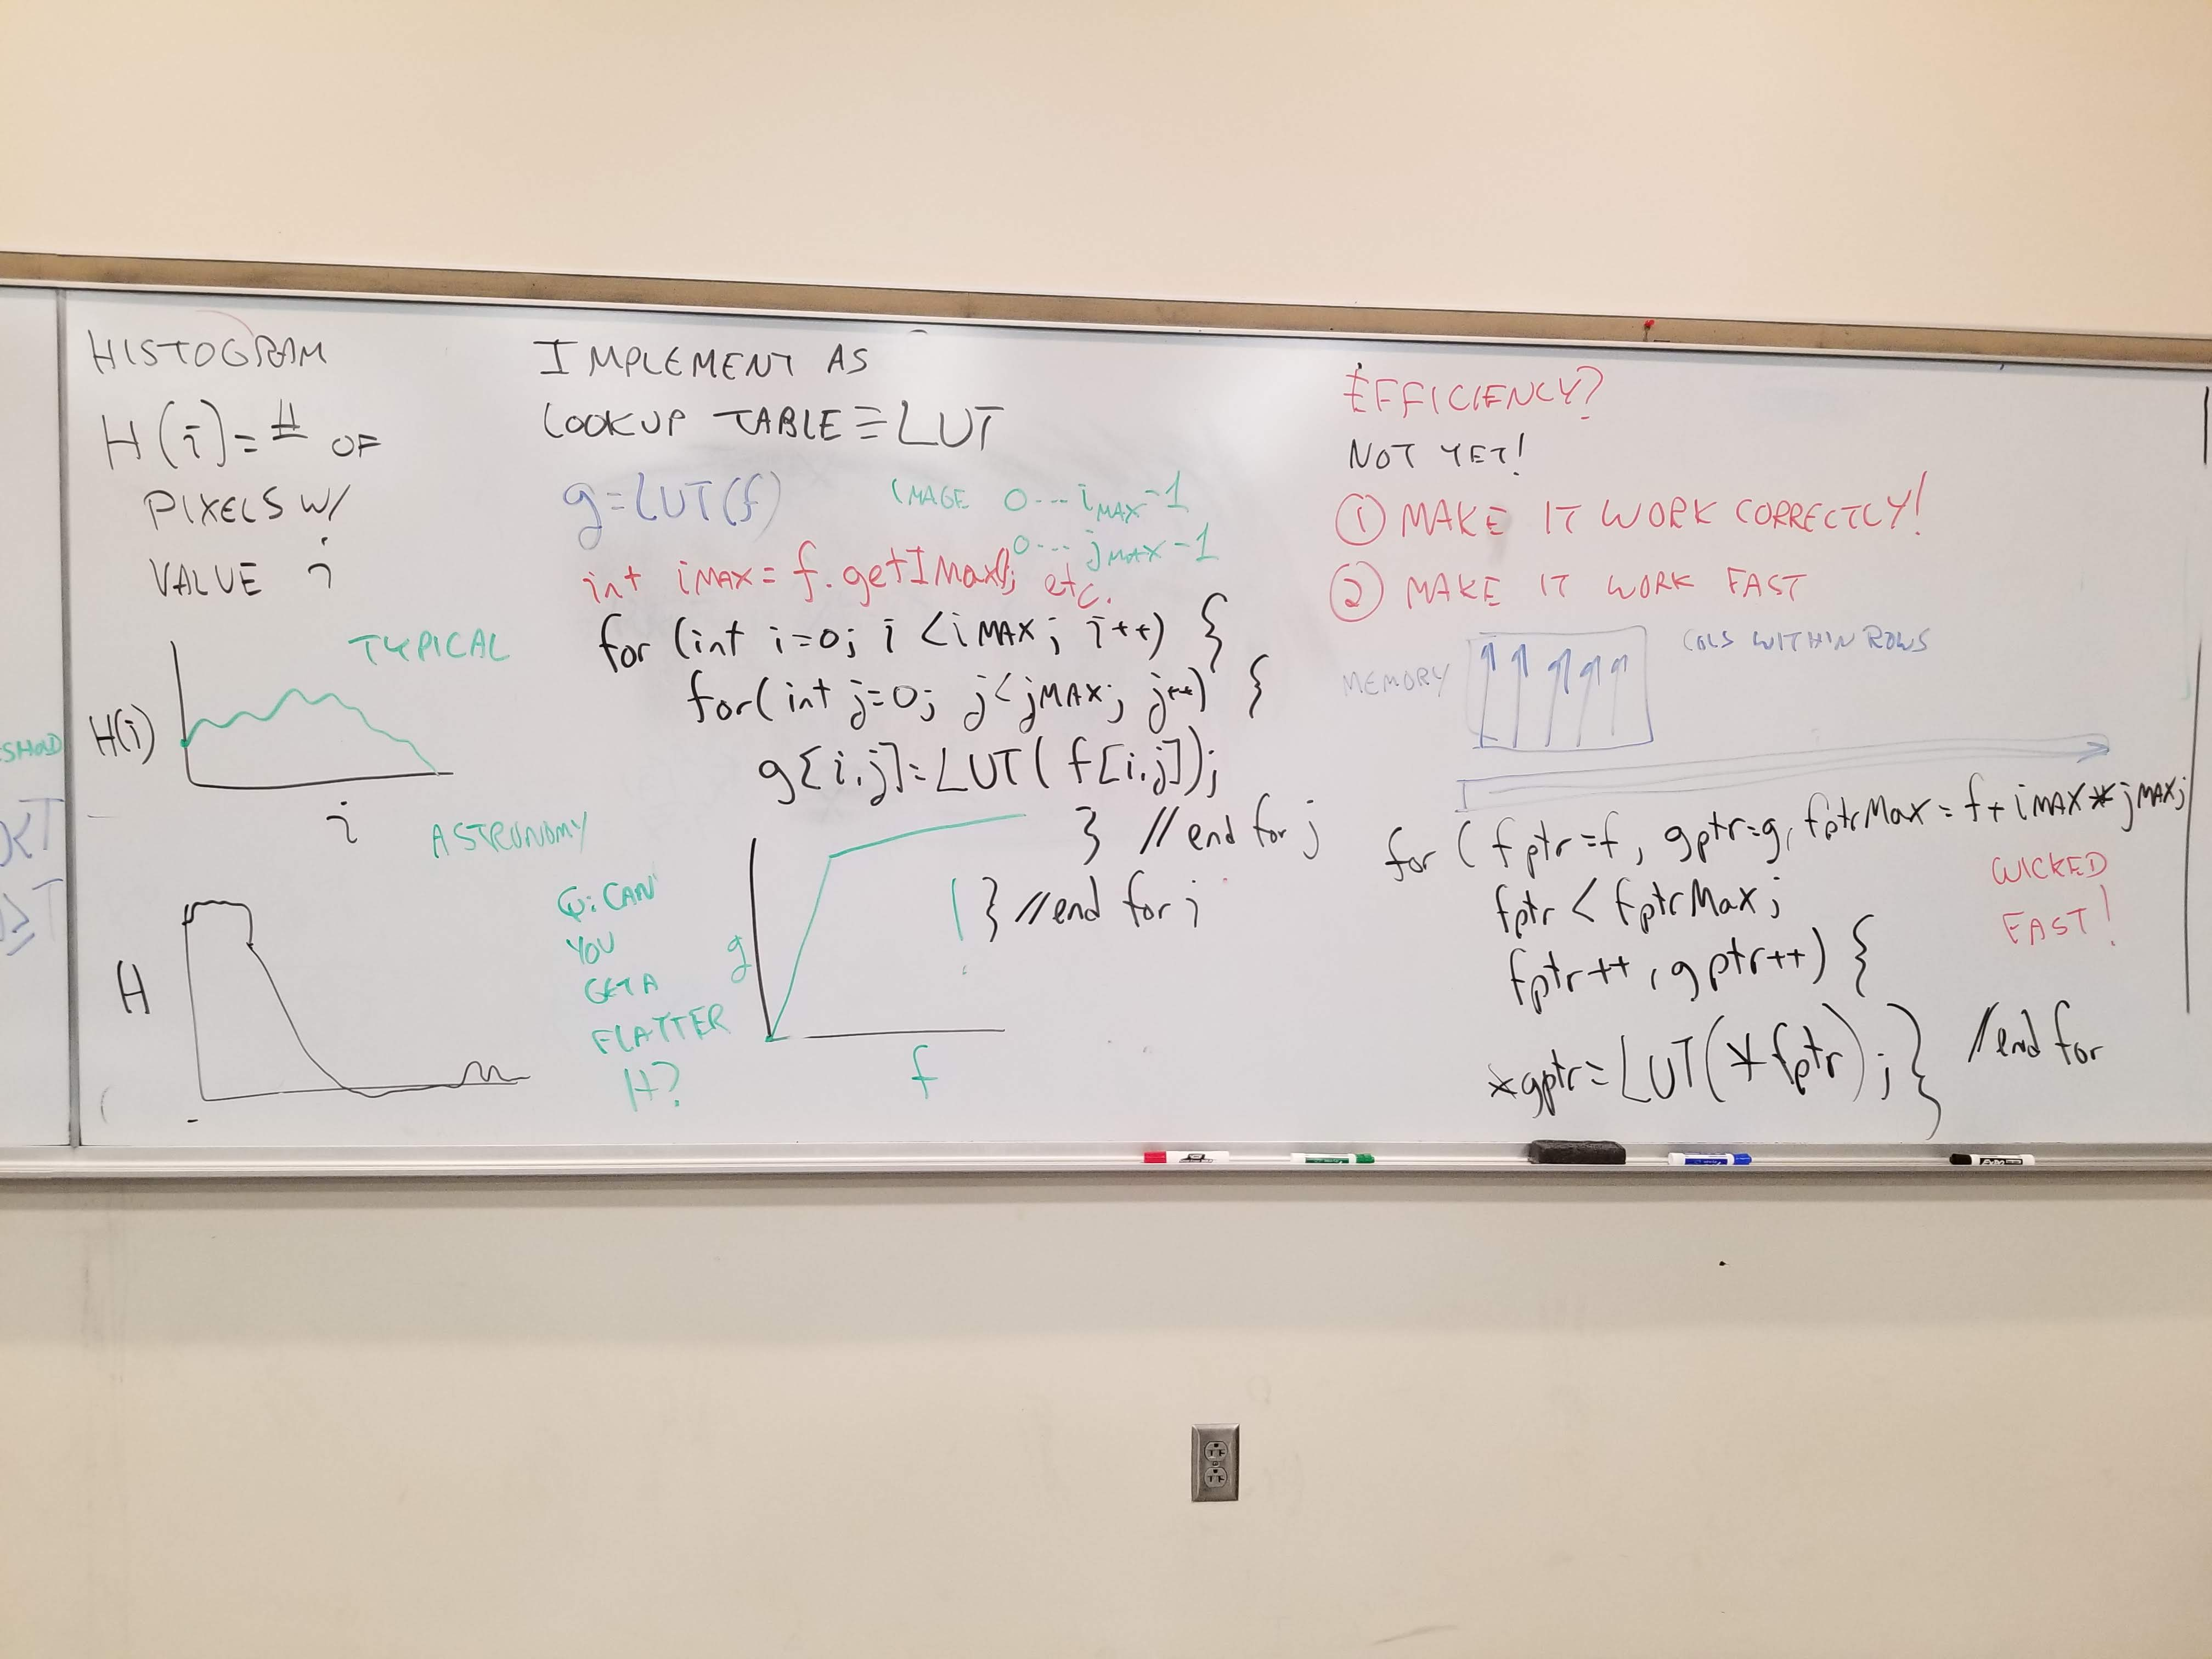 HISTOGRAM
H(i)=# OF
PIXELS W/
VALUE i
TYPICAL
H(i)
i
ASTRONOMY
H
Q: CAN
YOU
GET A
FLATTER
H?
g
f
IMPLEMENT AS
LOOKUP TABLE ≡ LUT
g=LUT(f)
IMAGE 0---iMAX-1
0---jMAX-1
int iMAX = f.getIMax(); etc.
for (int i=0; i <iMAX; i++) {
for(int j=0; j<jMAX; j++) {
g[i,j]=LUT(f[i,j]);
} //end for j
} //end for i
EFFICIENCY?
NOT YET!
① MAKE IT WORK CORRECTLY!
② MAKE IT WORK FAST
MEMORY
COLS WITHIN ROWS
for (fptr=f, gptr=g, fptrMax=f+iMAX*jMAX;
fptr < fptrMax;
fptr++, gptr++) {
*gptr=LUT(*fptr);} //end for
WICKED
FAST!